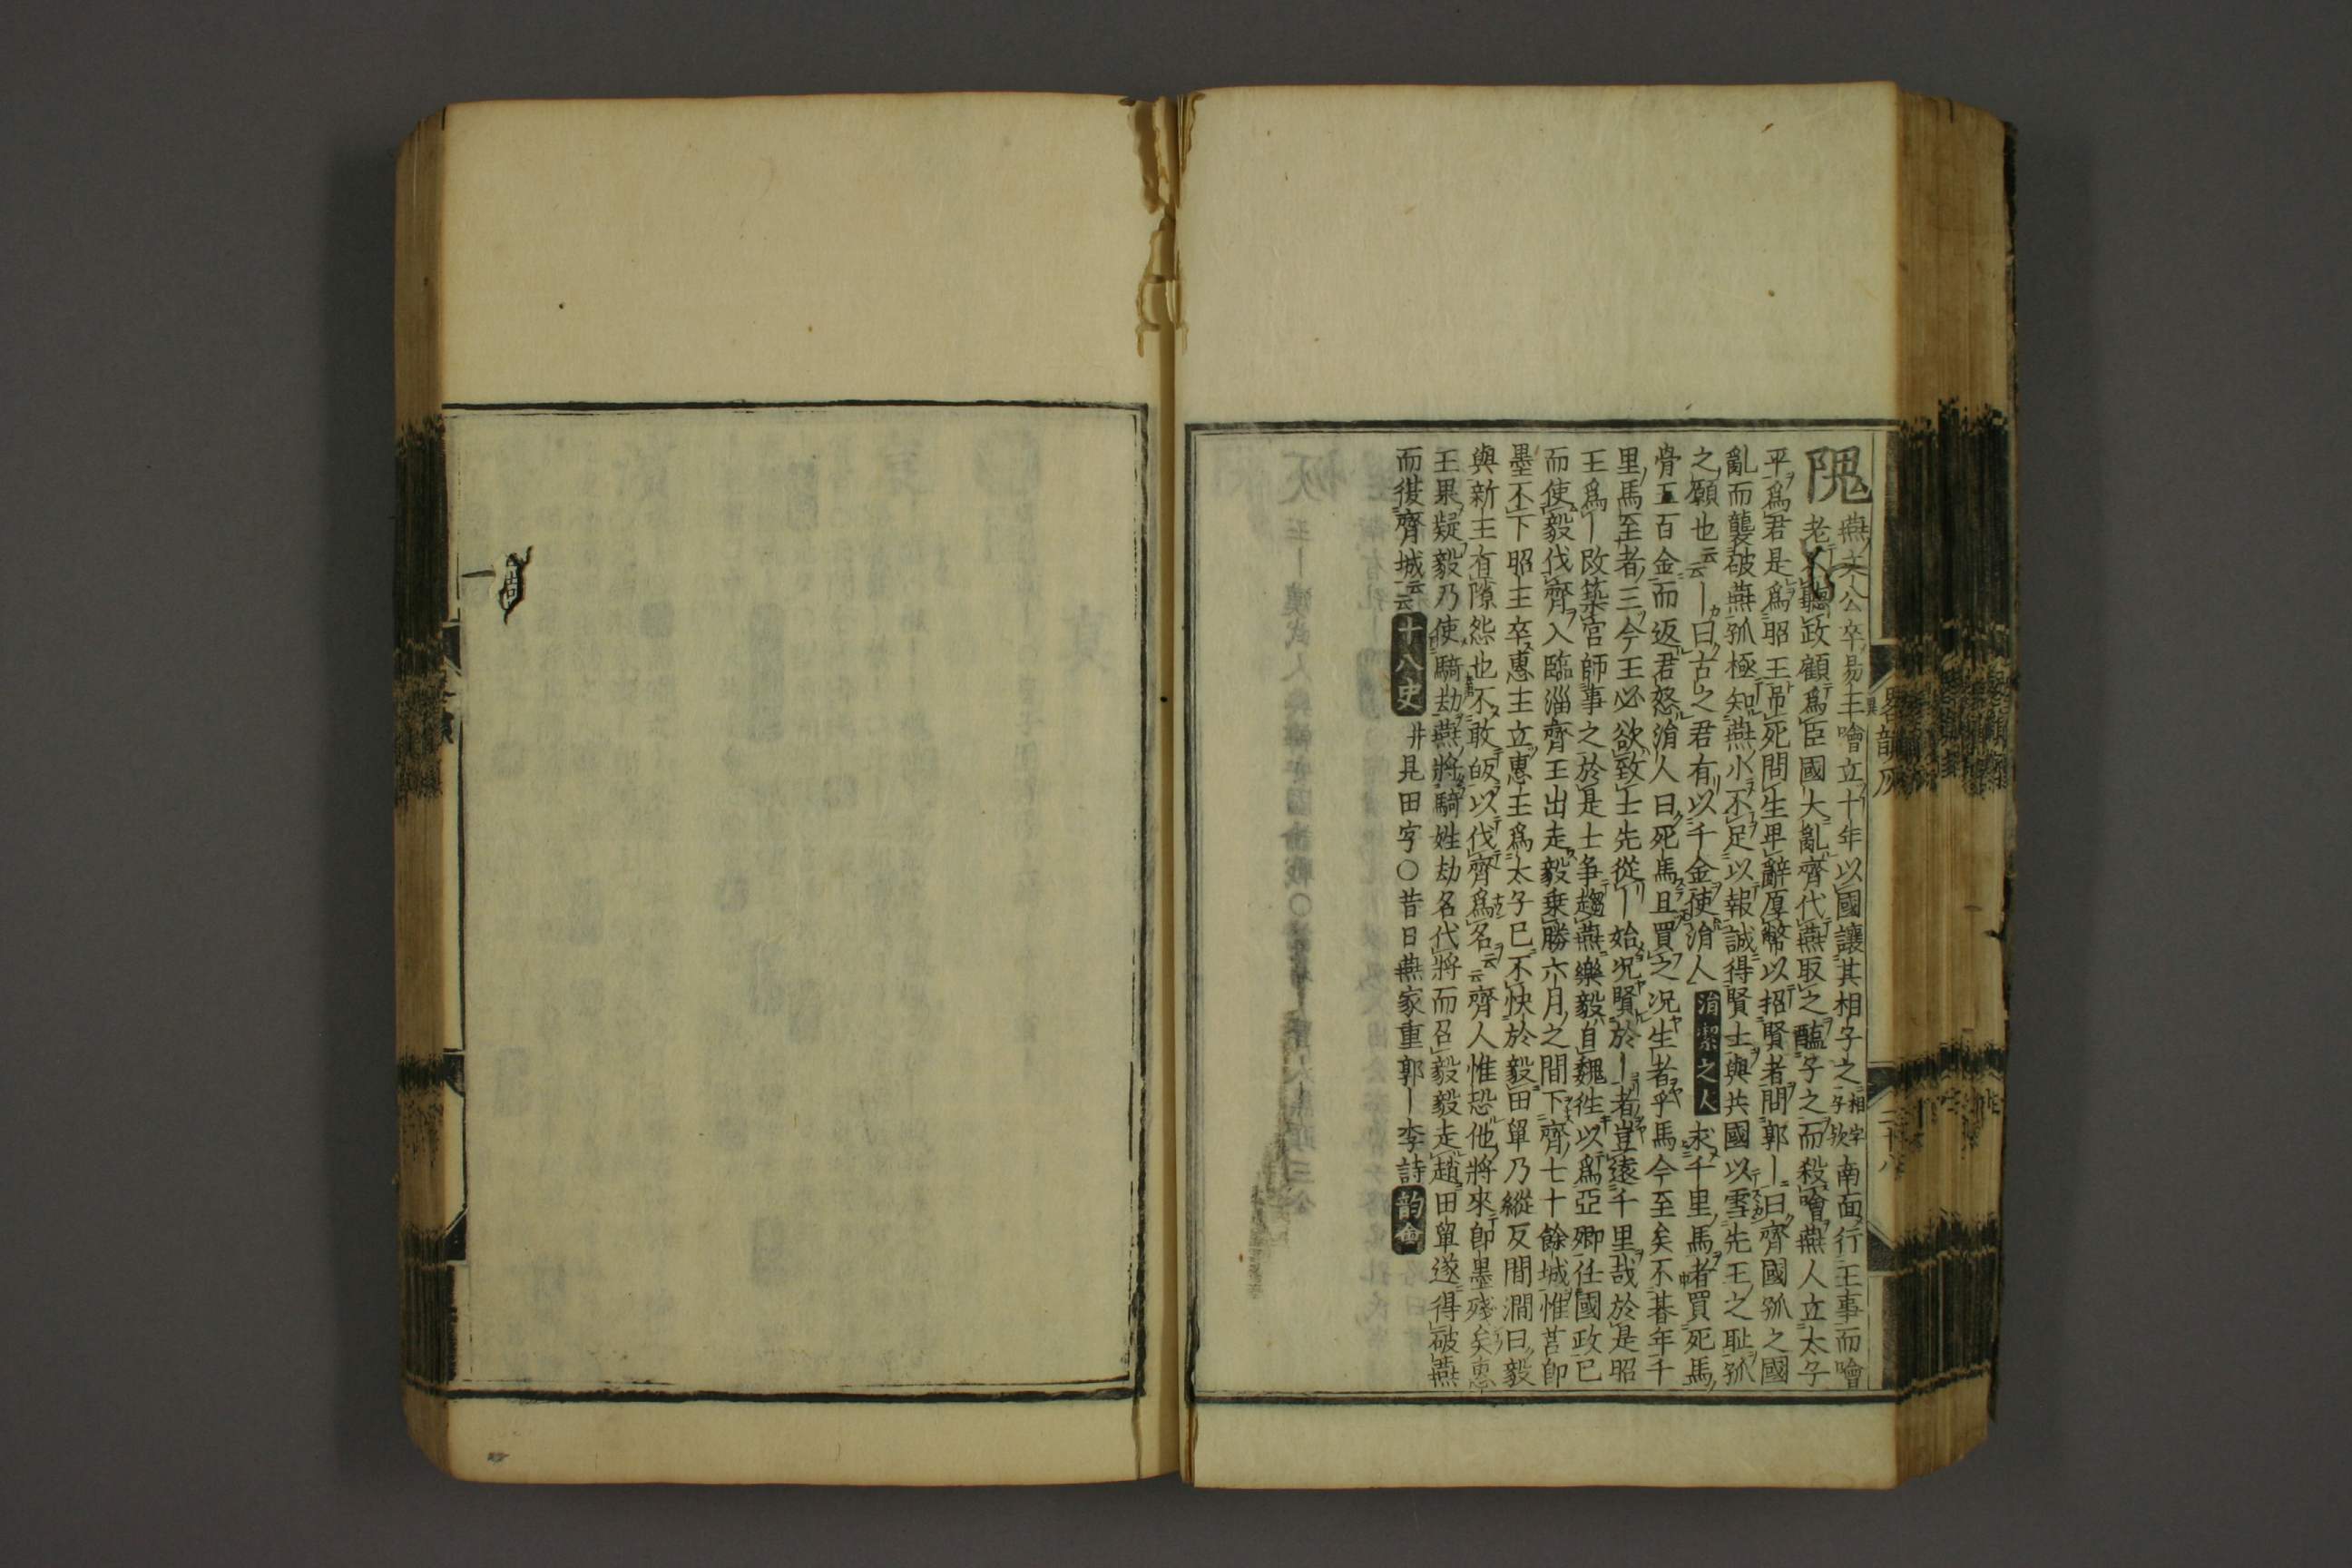 隗
燕文公卒易王噲立十年以國讓其相子之南面行王事而噲
老不聽政顧爲臣國大亂齊伐燕取之醢子之而殺噲燕人立太子
平爲君是爲昭王吊死問生卑辭厚幣以招賢者問郭―曰齊國孤之國
亂而襲破燕孤極知燕小不足以報誠得賢士與共國以雪先王之耻孤
之願也云云―曰古之君有以千金使涓人涓潔之人求千里馬者買死馬
骨五百金而返君怒涓人曰死馬且買之况生者乎馬今至矣不暮年千
里馬至者三今王必欲致士先從―始况賢於―者豈遠千里哉於是昭
王爲―改築宮師事之於是士争趨燕樂毅自魏徃以爲亞卿任國政已
而使毅伐齊入臨淄齊王出走毅乗勝六月之間下齊七十餘城惟莒卽
墨不下昭王卒惠王立惠王爲太子已不快於毅田單乃縱反間澗曰毅
與新王有隙怨也不敢皈以伐齊爲名云云齊人惟恐他將來卽墨殘矣惠
王果疑毅乃使騎劫燕將騎姓劫名代將而召毅毅走趙田單遂得破燕
而復齊城云云十八史并見田字○昔日燕家重郭―李詩韵會
畧韻灰
二十八